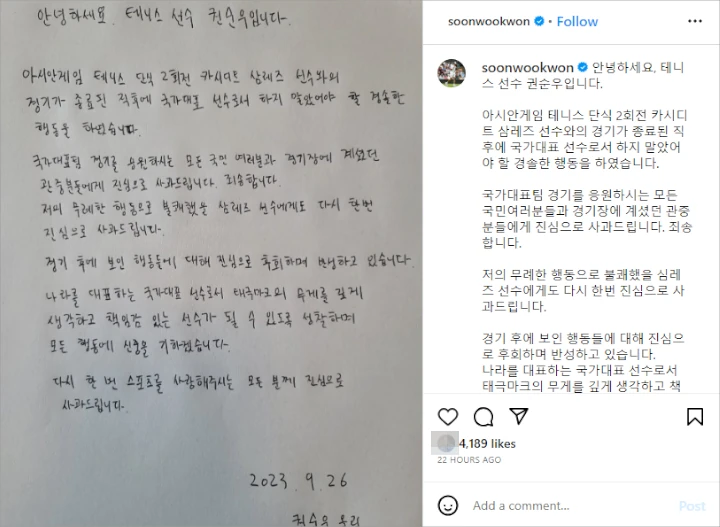 안녕하세요. 테니스 선수 권순우입니다.
아시안게임 테니스 단식 2회전 카시디트 삼레즈 선수와의
경기가 종료된 직후에 국가대표 선수로서 하지 말았어야 할 경솔한
행동을 하였습니다.
국가대표팀 경기를 응원하시는 모든 국민 여러분과 경기장에 계셨던
관중분들에게 진심으로 사과드립니다. 죄송합니다.
저의 무례한 행동으로 불쾌했을 삼레즈 선수에게도 다시 한번
진심으로 사과드립니다.
경기 후에 보인 행동들에 대해 진심으로 후회하며 반성하고 있습니다.
나라를 대표하는 국가대표 선수로서 태극마크의 무게를 깊게
생각하고 책임감 있는 선수가 될 수 있도록 성찰하며
모든 행동에 신중을 기하겠습니다.
다시 한 번 스포츠를 사랑해주시는 모든 분께 진심으로
사과드립니다.
2023. 9. 26
권순우 올림
soonwookwon • Follow
soonwookwon 안녕하세요, 테니
스 선수 권순우입니다.
아시안게임 테니스 단식 2회전 카시디
트 삼레즈 선수와의 경기가 종료된 직
후에 국가대표 선수로서 하지 말았어
야 할 경솔한 행동을 하였습니다.
국가대표팀 경기를 응원하시는 모든
국민여러분들과 경기장에 계셨던 관중
분들에게 진심으로 사과드립니다. 죄송
합니다.
저의 무례한 행동으로 불쾌했을 심레
즈 선수에게도 다시 한번 진심으로 사
과드립니다.
경기 후에 보인 행동들에 대해 진심으
로 후회하며 반성하고 있습니다.
나라를 대표하는 국가대표 선수로서
태극마크의 무게를 깊게 생각하고 책
4,189 likes
22 HOURS AGO
Add a comment...
Post